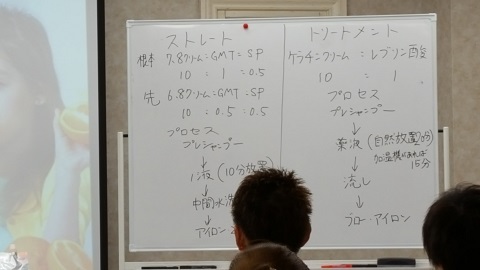 ストレート
根本 7.8クリーム=GMT=SP
10 = 1 = 0.5
先 6.8クリーム=GMT=SP
10 = 0.5 = 0.5
プロセス
プレシャンプー
↓
1液(10分放置)
↓
中間水洗
↓
アイロン
トリートメント
ケラチンクリーム = レブリン酸
10 = 1
プロセス
プレシャンプー
↓
薬液(自然放置20分)
加温機であれば
15分
↓
流し
↓
ブロー・アイロン